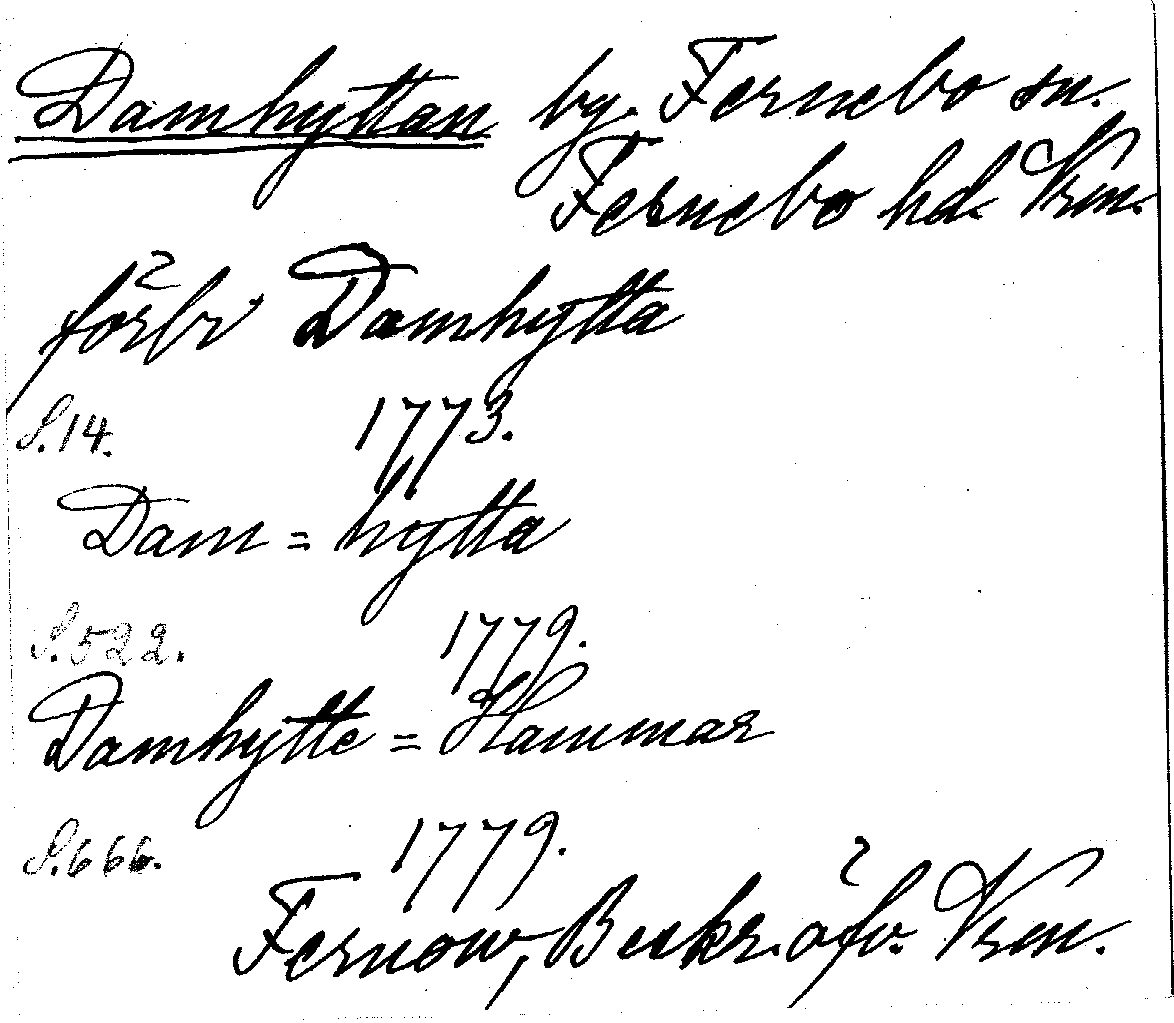 Damhyttan by. Fernebo sn.
Fernebo hd. Vrm.
förbi Damhytta
S.14. 1773.
Dam=hytta
S.522. 1779.
Damhytte=Hammar
S.666. 1779.
Fernow, Beskr. öfv. Vrm.